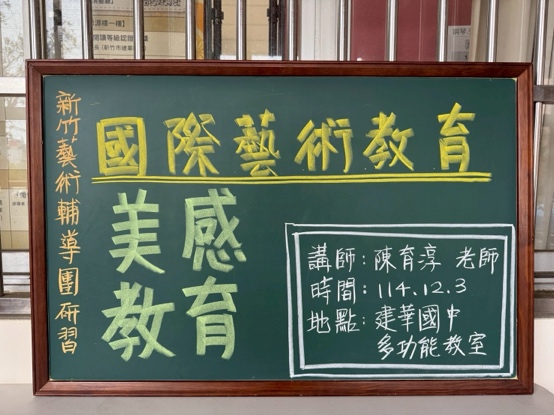 新竹藝術輔導團研習
國際藝術教育
美感
教育
講師：陳育淳 老師
時間：114.12.3
地點：建華國中
多功能教室